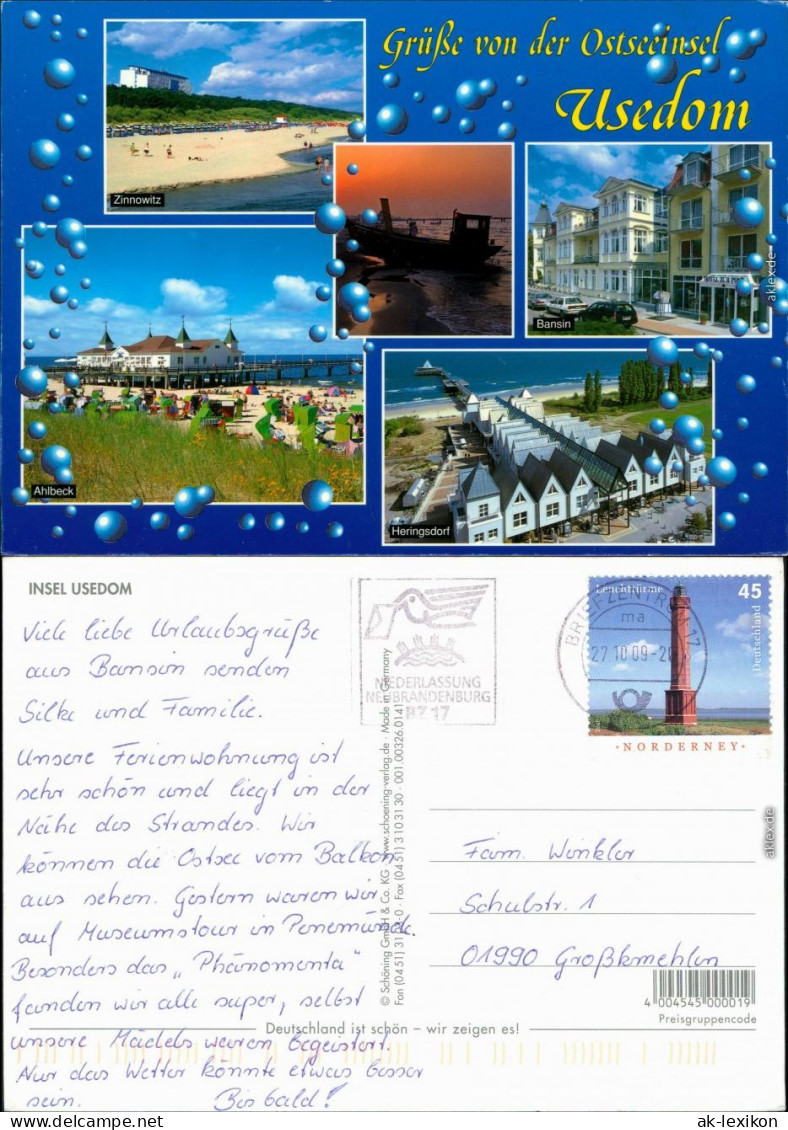 Grüße von der Ostseeinsel
Usedom
Zinnowitz
Bansin
Ahlbeck
Heringsdorf
aklex.de
INSEL USEDOM
Viele liebe Urlaubsgrüße
aus Bansin senden
Silke und Familie.
Unsere Ferienwohnung ist
sehr schön und liegt in der
Nähe des Strandes. Wir
können die Ostsee vom Balkon
aus sehen. Gestern waren wir
auf Museumstour in Penemünde.
Besonders das „Phänomenta"
fanden wir alle super, selbst
unsere Mädels waren begeistert.
Nur das Wetter könnte etwas besser
sein. Bis bald!
NIEDERLASSUNG
NEUBRANDENBURG
BZ 17
© Schöning GmbH & Co. KG · www.schoening-verlag.de · Made in Germany
Fon (04 51) 31 03-0 · Fax (04 51) 3 10 31 30 · 001.00326.0141
BRIEFZENTRUM 17
ma
27.10.09-20
Leuchttürme
45
Deutschland
· NORDERNEY ·
Fam. Winkler
Schulstr. 1
01990 Großkmehlen
4 004545 000019
Preisgruppencode
Deutschland ist schön – wir zeigen es!
akлex.de
ak-lexikon